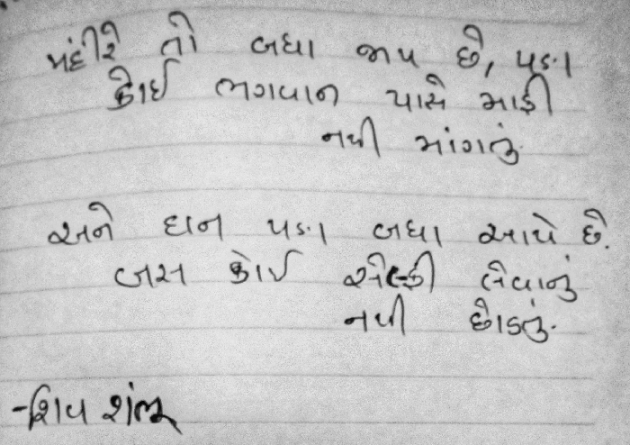 મંદીરે તો બધા જાય છે, પણ
કોઈ ભગવાન પાસે માફી
નથી માંગતું.
અને દાન પણ બધા આપે છે.
બસ કોઈ સેલ્ફી લેવાનું
નથી છોડતું.
-શિવ શંભૂ